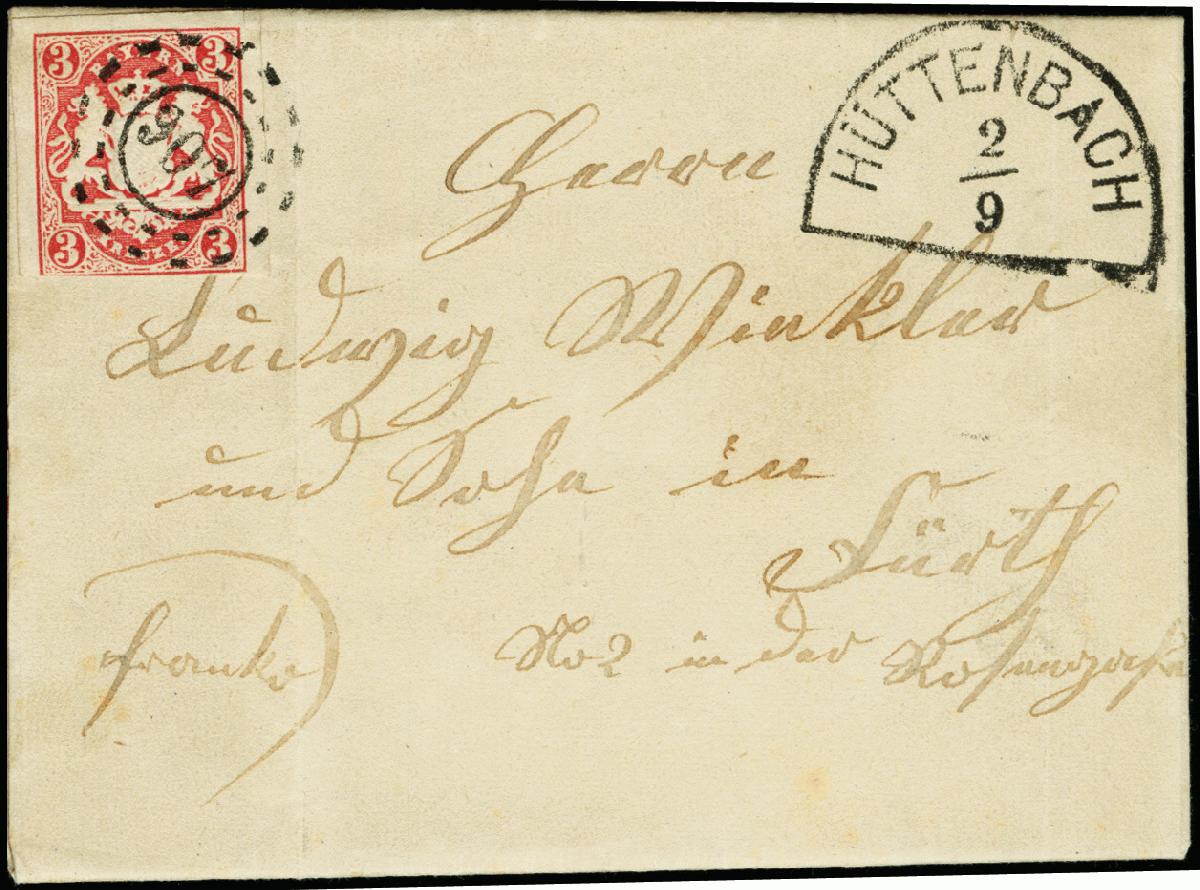 3 3
BAYERN
907
3 3
KREUZER
HÜTTENBACH
2
9
Herrn
Ludwig Winkler
und Sohn in
Fürth
No 2 in der Rosengasse
franko